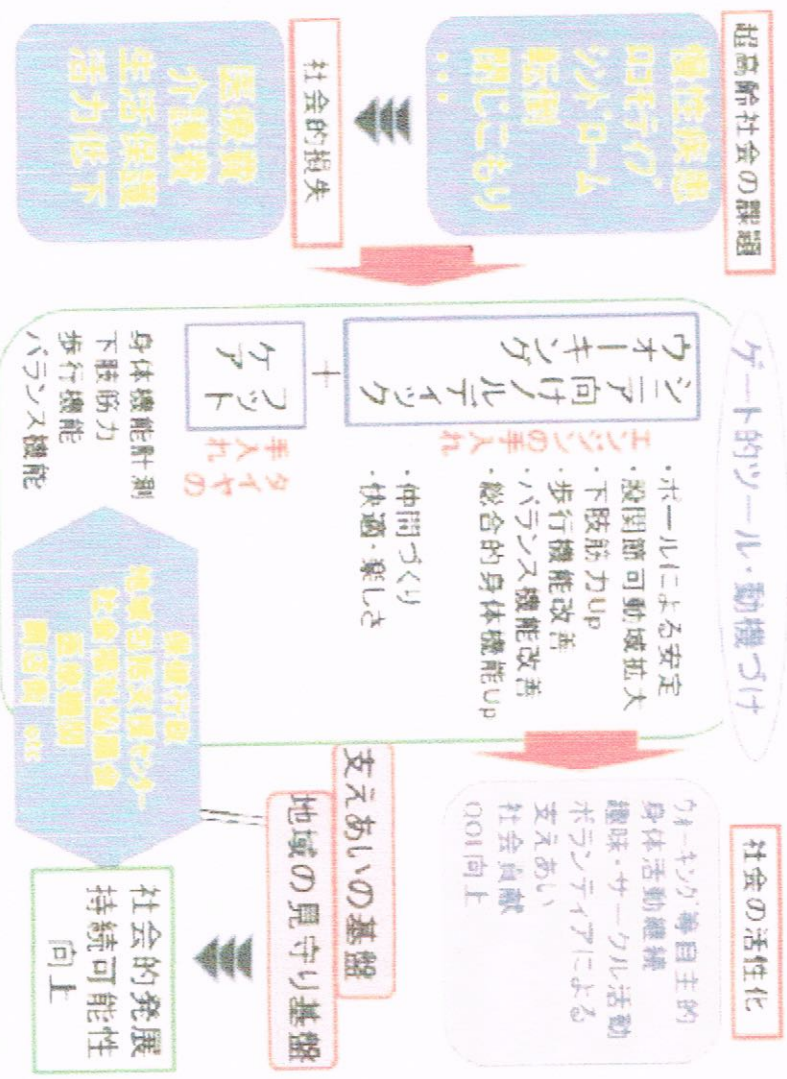 超高齢社会の課題
慢性疾患
ロコモティブ
シンドローム
転倒
閉じこもり
・・・
社会的損失
医療費
介護費
生活保護
活力低下
ゲート的ツール・動機づけ
シニア向けノルディック
ウォーキング
エンジンの手入れ
・ポールによる安定
・股関節可動域拡大
・下肢筋力Up
・歩行機能改善
・バランス機能改善
・総合的身体機能Up
・仲間づくり
・快適・楽しさ
+
フット
ケア
タイヤの
手入れ
身体機能計測
下肢筋力
歩行機能
バランス機能
保健行政
地域包括支援センター
社会福祉協議会
医療機関
etc
社会の活性化
ウォーキング等自主的
身体活動継続
趣味・サークル活動
ボランティアによる
支えあい
社会貢献
QOl向上
支えあいの基盤
地域の見守り基盤
社会的発展
持続可能性
向上